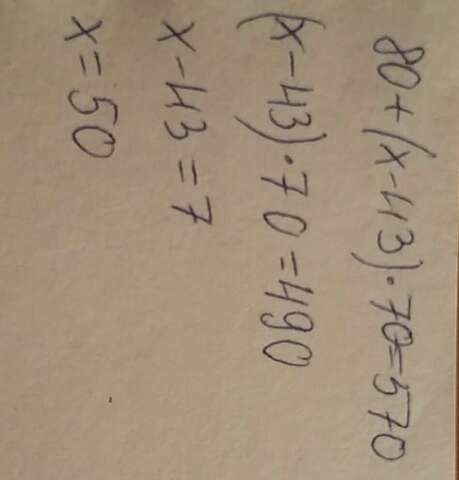 80+(x-43)·70=570
(x-43)·70=490
x-43=7
x=50